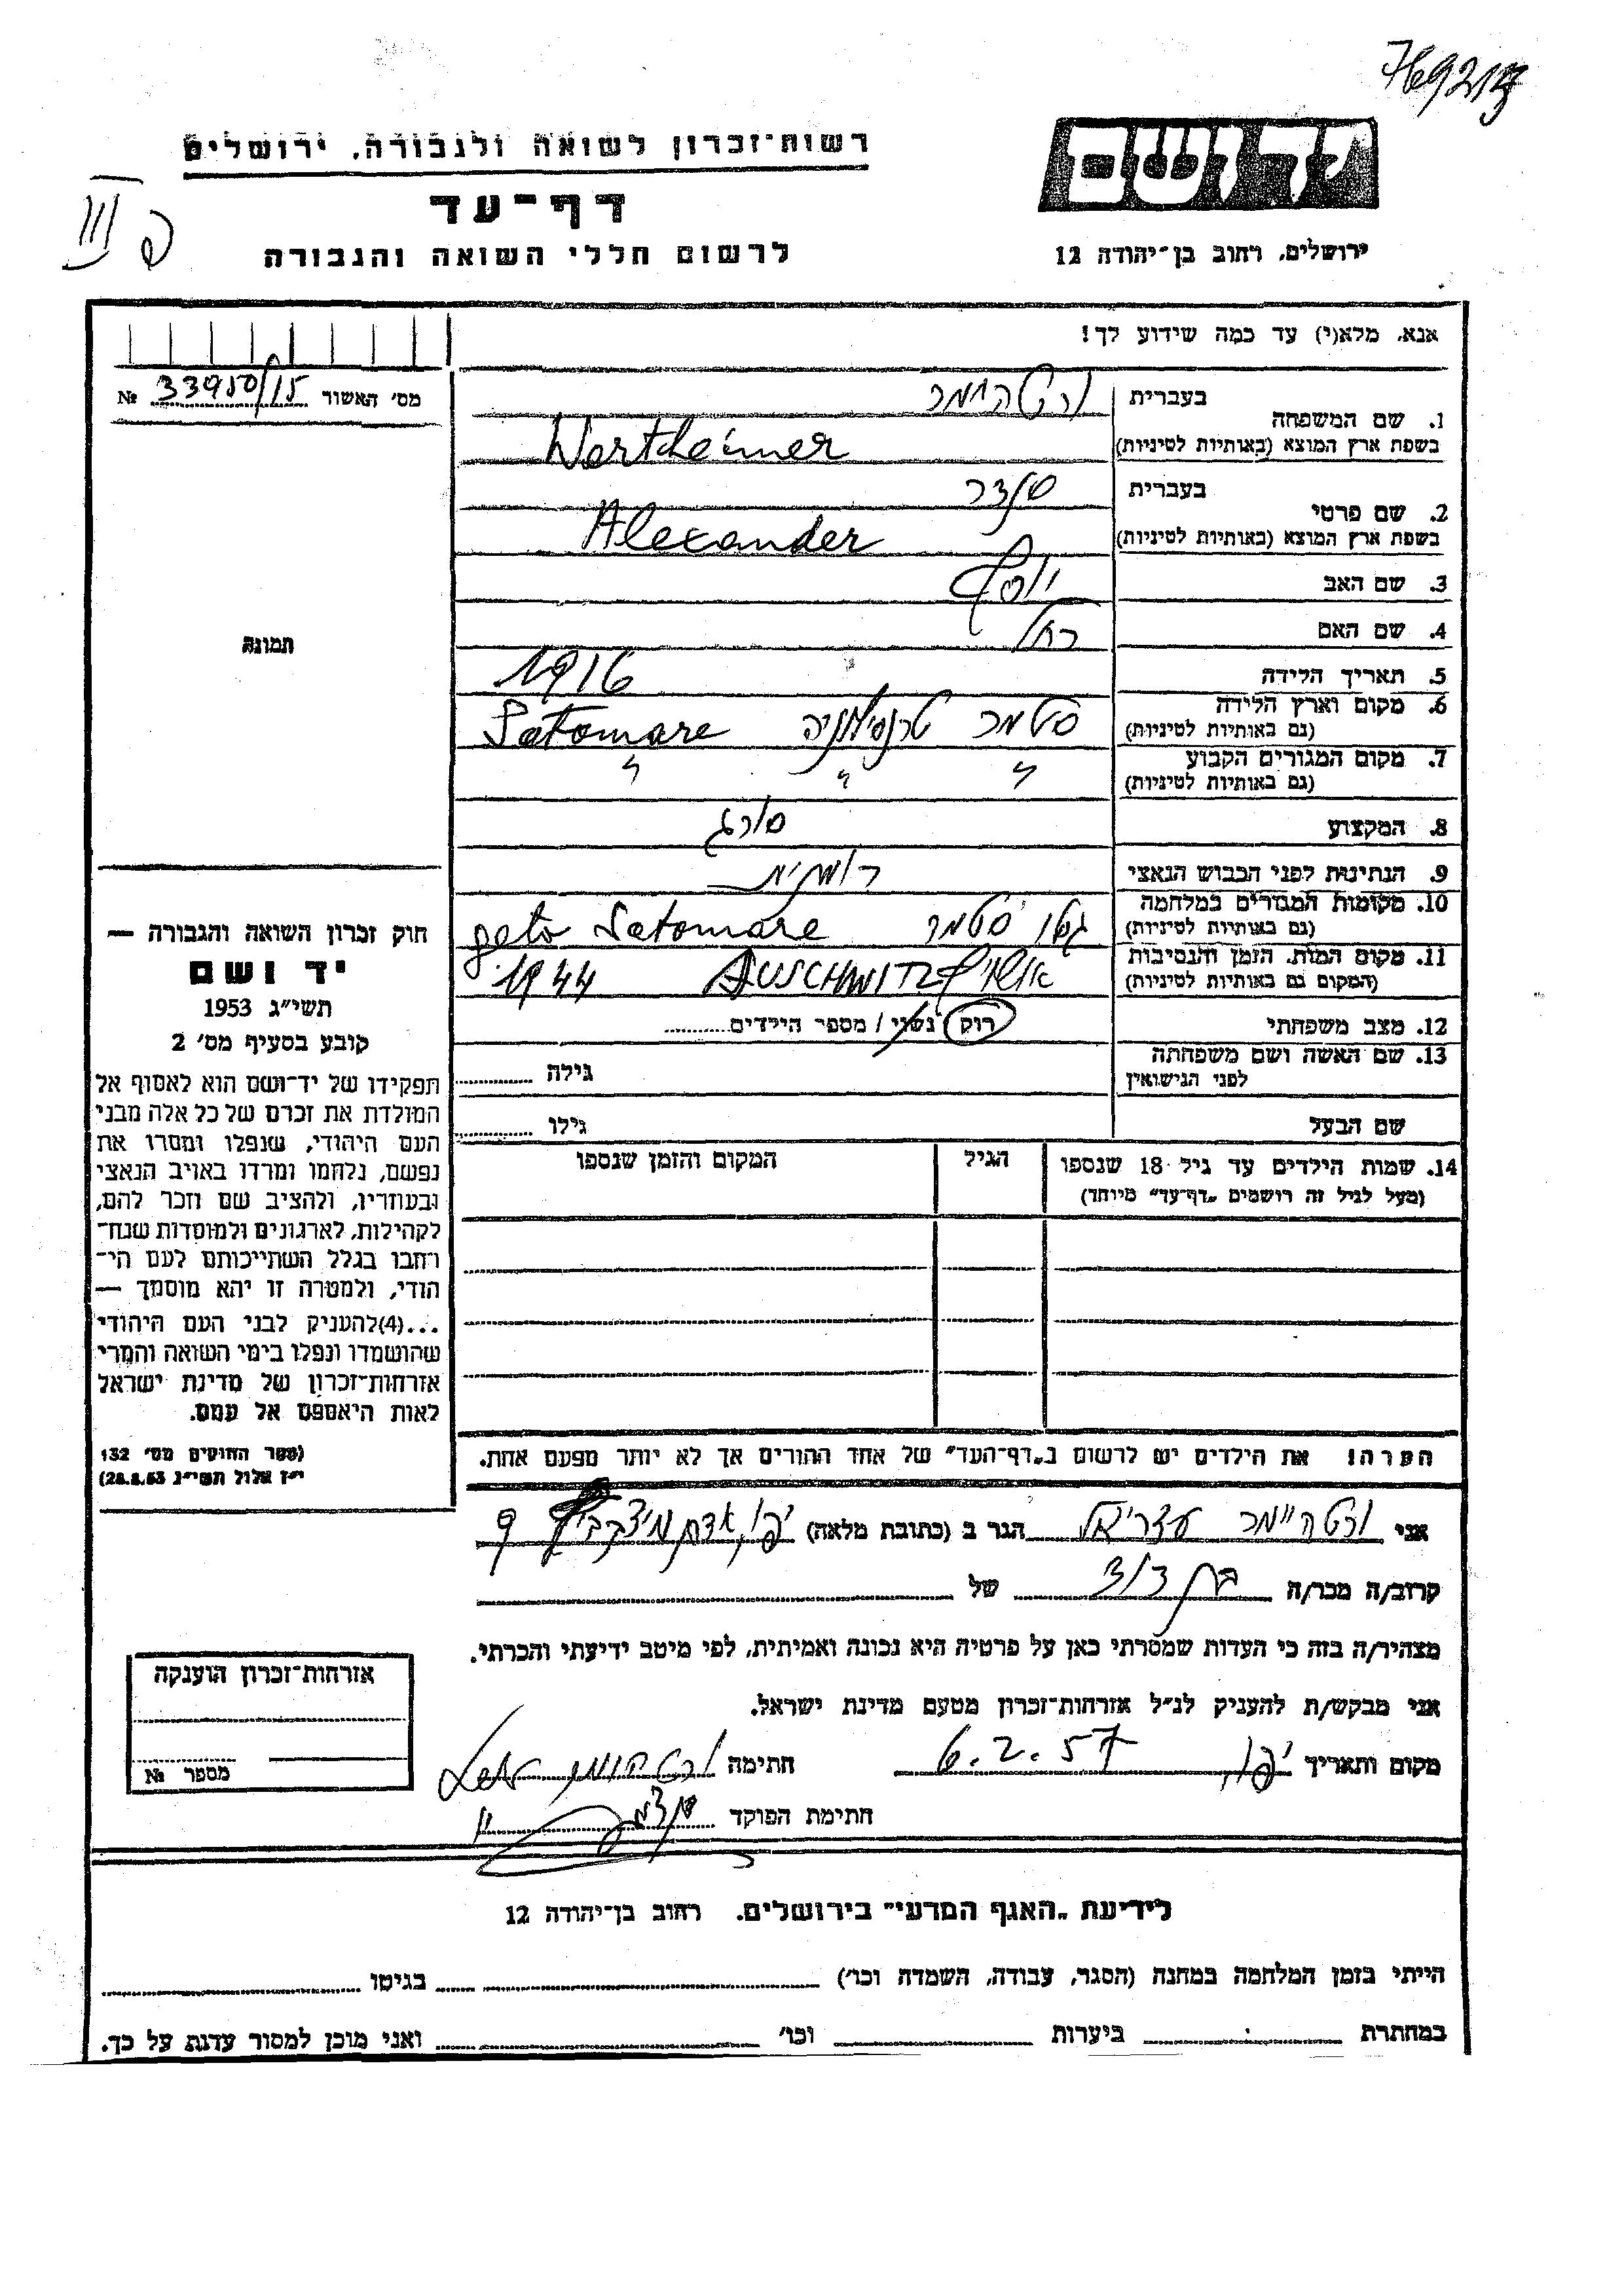 769213
רשות־זכרון לשואה ולגבורה, ירושלים
יד ושם
דף־עד
לרשום חללי השואה והגבורה
ירושלים, רחוב בן־יהודה 12
אנא, מלא(י) עד כמה שידוע לך!
מס׳ האשור 33950/15 №
1. שם המשפחה בעברית ורטהימר
בשפת ארץ המוצא (באותיות לטיניות) Wertheimer
2. שם פרטי בעברית סנדר
בשפת ארץ המוצא (באותיות לטיניות) Alexander
3. שם האב יוסף
4. שם האם רחל
תמונה
5. תאריך הלידה 1916
6. מקום וארץ הלידה (גם באותיות לטיניות) סטמר טרנסילווניה Satomare
7. מקום המגורים הקבוע (גם באותיות לטיניות) " " "
8. המקצוע סורג
9. הנתינות לפני הכבוש הנאצי רומנית
10. מקומות המגורים במלחמה (גם באותיות לטיניות) גטו סטמר geto Satomare
11. מקום המות, הזמן והנסיבות (המקום גם באותיות לטיניות) אושויץ AUSCHWITZ 1944
12. מצב משפחתי רוק / נשוי / מספר הילדים
13. שם האשה ושם משפחתה לפני הנישואין גילה
שם הבעל גילו
14. שמות הילדים עד גיל 18 שנספו הגיל המקום והזמן שנספו
(מעל לגיל זה רושמים „דף־עד״ מיוחד)
חוק זכרון השואה והגבורה —
יד ושם
תשי״ג 1953
קובע בסעיף מס׳ 2
תפקידו של יד־ושם הוא לאסוף אל
המולדת את זכרם של כל אלה מבני
העם היהודי, שנפלו ומסרו את
נפשם, נלחמו ומרדו באויב הנאצי
ובעוזריו, ולהציב שם וזכר להם,
לקהילות, לארגונים ולמוסדות שנח־
רבו בגלל השתייכותם לעם הי־
הודי, ולמטרה זו יהא מוסמך —
...(4)להעניק לבני העם היהודי
שהושמדו ונפלו בימי השואה והמרי
אזרחות־זכרון של מדינת ישראל
לאות היאספם אל עמם.
(ספר החוקים מס׳ 132
י״ז אלול תשי״ג 28.8.53)
הערה! את הילדים יש לרשום ב„דף־העד״ של אחד ההורים אך לא יותר מפעם אחת.
אני ורטהיימר עזריאל הגר ב (כתובת מלאה) יפו, 9
קרוב/ה מכר/ה בן דוד של
מצהיר/ה בזה כי העדות שמסרתי כאן על פרטיה היא נכונה ואמיתית, לפי מיטב ידיעתי והכרתי.
אני מבקש/ת להעניק לנ״ל אזרחות־זכרון מטעם מדינת ישראל.
מקום ותאריך יפו, 6.2.57 חתימה
חתימת הפוקד
אזרחות־זכרון הוענקה
מספר №
לידיעת „האגף המדעי״ בירושלים, רחוב בן־יהודה 12
הייתי בזמן המלחמה במחנה (הסגר, עבודה, השמדה וכו׳) בגיטו
במחתרת ביערות וכו׳ ואני מוכן למסור עדות על כך.